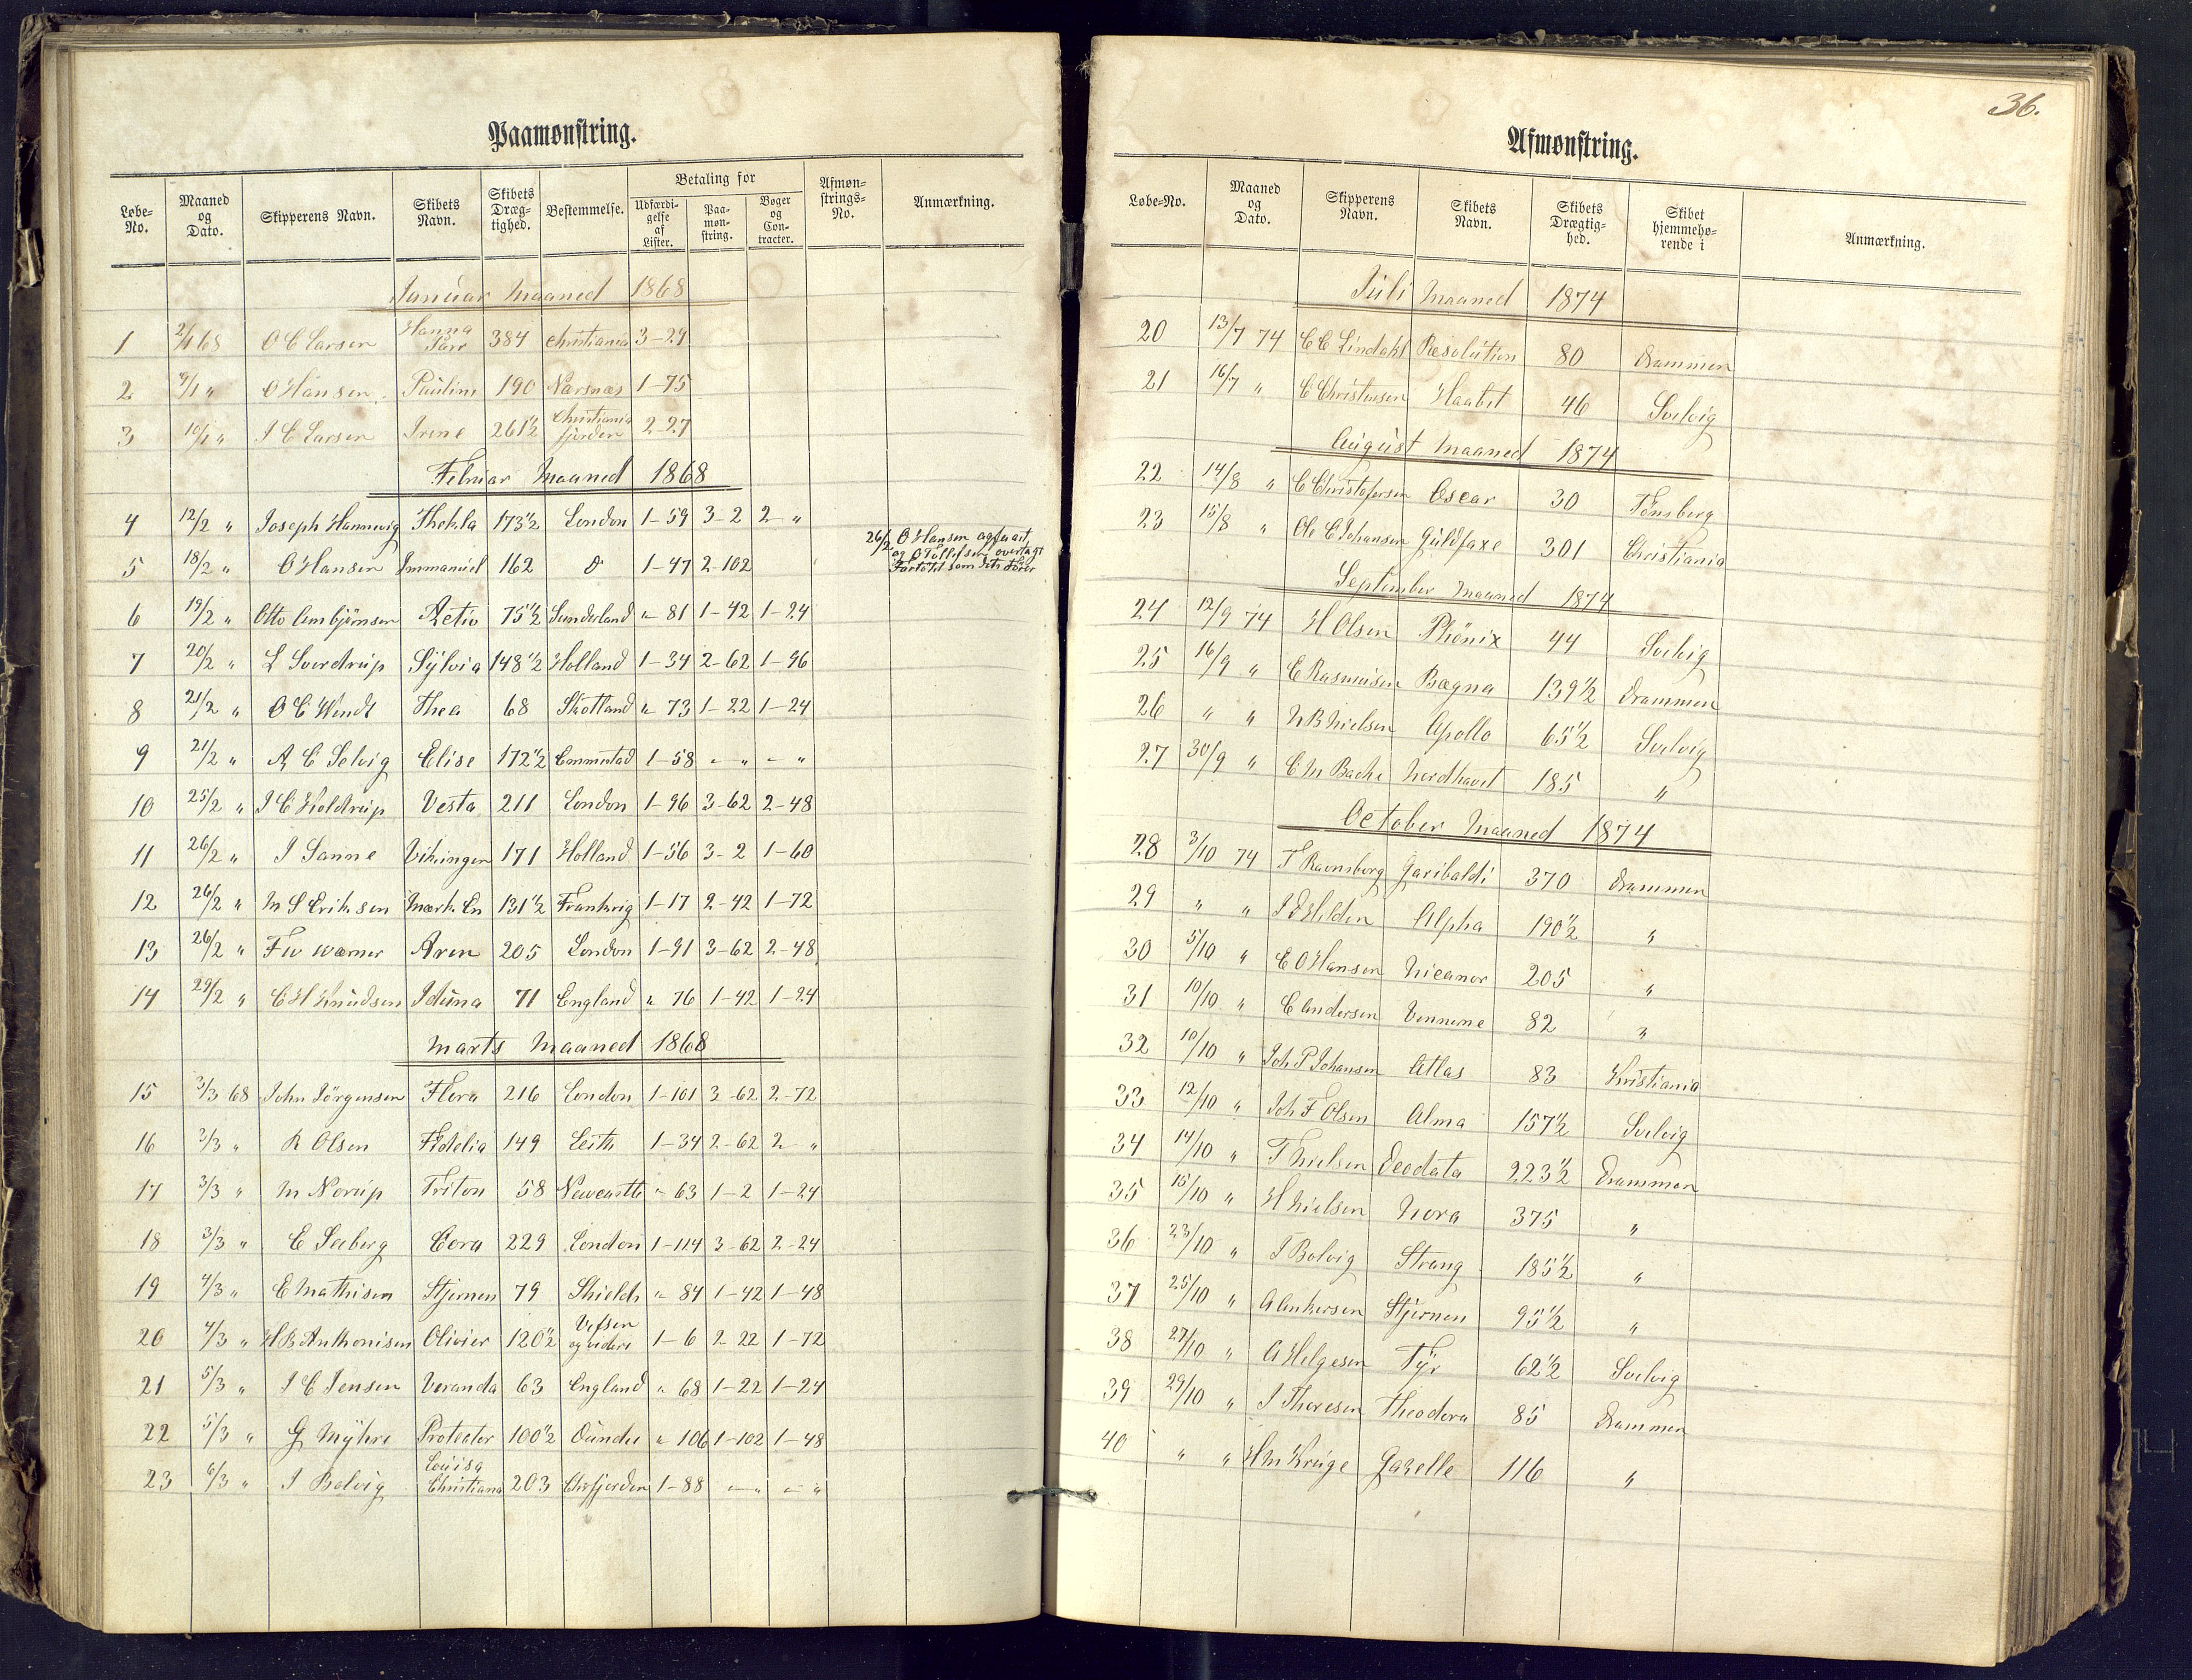 Paamønstring.
Løbe-No. Maaned og Dato. Skipperens Navn. Skibets Navn. Skibets Dræg-tighed. Bestemmelse. Betaling for Udfærdi-gelse af Lister. Paa-møn-string. Bøger og Con-tracter. Afmøn-strings-No. Anmærkning.
Januar Maaned 1868
1 2/1 68 O C Larsen Hanna Parr 384 Christiania 3-29
2 9/1 " O Hansen Pauline 190 Nærsnæs 1-75
3 10/1 " I C Larsen Irene 261 1/2 Christiania fjorden 2-27
Februar Maaned 1868
4 12/2 " Joseph Hannevig Thekla 173 1/2 London 1-59 3-2 2 "
5 18/2 " O Hansen Immanuel 162 do 1-47 2-102 26/2 O Hansen og O Tollefsen overtagt Fartøiet som dets Fører
6 19/2 " Otto Ambjörnsen Aetiv 75 1/2 Sunderland " 81 1-42 1-24
7 20/2 " L Sverdrup Sÿlvia 148 1/2 Holland 1-34 2-62 1-96
8 21/2 " O C Wendt Thea 68 Skotland " 73 1-22 1-24
9 21/2 " A C Selvig Elise 172 1/2 Emmestad 1-58 " " " "
10 25/2 " I C Holdtrup Vesta 211 London 1-96 3-62 2-48
11 26/2 " I Sanne Vikingen 171 Holland 1-56 3-2 1-60
12 26/2 " M S Eriksen Mærk. En 131 1/2 Frankrig 1-17 2-42 1-72
13 26/2 " Fw Wærner Aren 205 London 1-91 3-62 2-48
14 29/2 " C H Knudsen Iduna 71 England " 76 1-42 1-24
Marts Maaned 1868
15 3/3 68 John Jörgensen Flora 216 London 1-101 3-62 2-72
16 3/3 " R Olsen Fidelia 149 Leith 1-34 2-62 2 "
17 3/3 " M Norup Triton 58 Newcastle " 63 1-2 1-24
18 3/3 " C Seeberg Cora 229 London 1-114 3-62 2-24
19 4/3 " E Mathisen Stjernen 79 Shields " 84 1-42 1-48
20 4/3 " H B Anthonisen Olivier 120 1/2 Vefsen og videre 1-6 2-22 1-72
21 5/3 " I C Jensen Veranda 63 England " 68 1-22 1-24
22 5/3 " G Mÿhre Protector 100 1/2 Dundee " 106 1-102 1-48
23 6/3 " I Bolvig Louisa Christiana 203 Chrfjorden 1-88 " " " "
36.
Afmønstring.
Løbe-No. Maaned og Dato. Skipperens Navn. Skibets Navn. Skibets Drægtig-hed. Skibet hjemmehø-rende i Anmærkning.
Juli Maaned 1874
20 13/7 74 C C Lindahl Resolution 80 Drammen
21 16/7 " C Christensen Haabet 46 Svelvig
August Maaned 1874
22 14/8 " C Christofersen Oscar 30 Tönsberg
23 15/8 " Ole C Johansen Guldfaxe 301 Christiania
September Maaned 1874
24 12/9 74 H Olsen Phönix 44 Svelvig
25 16/9 " C Rasmusen Bægna 139 1/2 Drammen
26 " " N B Nielsen Apollo 65 1/2 Svelvig
27 30/9 " C M Bache Nordhavet 185 "
October Maaned 1874
28 3/10 74 T Ravnsborg Garibaldi 370 Drammen
29 " " I D Hilden Alpha 190 1/2 "
30 5/10 " E O Hansen Nicanor 205 "
31 10/10 " C Andersen Vennerne 82 "
32 10/10 " Joh P Johansen Atlas 83 Kristiania
33 12/10 " Joh F Olsen Alma 157 1/2 Svelvig
34 14/10 " T Nielsen Deodata 223 1/2 Drammen
35 15/10 " H Nielsen Nora 375 "
36 23/10 " I Bolvig Strang 185 1/2 "
37 25/10 " A Ankersen Stjernen 95 1/2 "
38 27/10 " A Helgesen Tÿr 62 1/2 Svelvig
39 29/10 " I Thoresen Theodora 85 Drammen
40 " " H M Kruge Gazelle 116 "